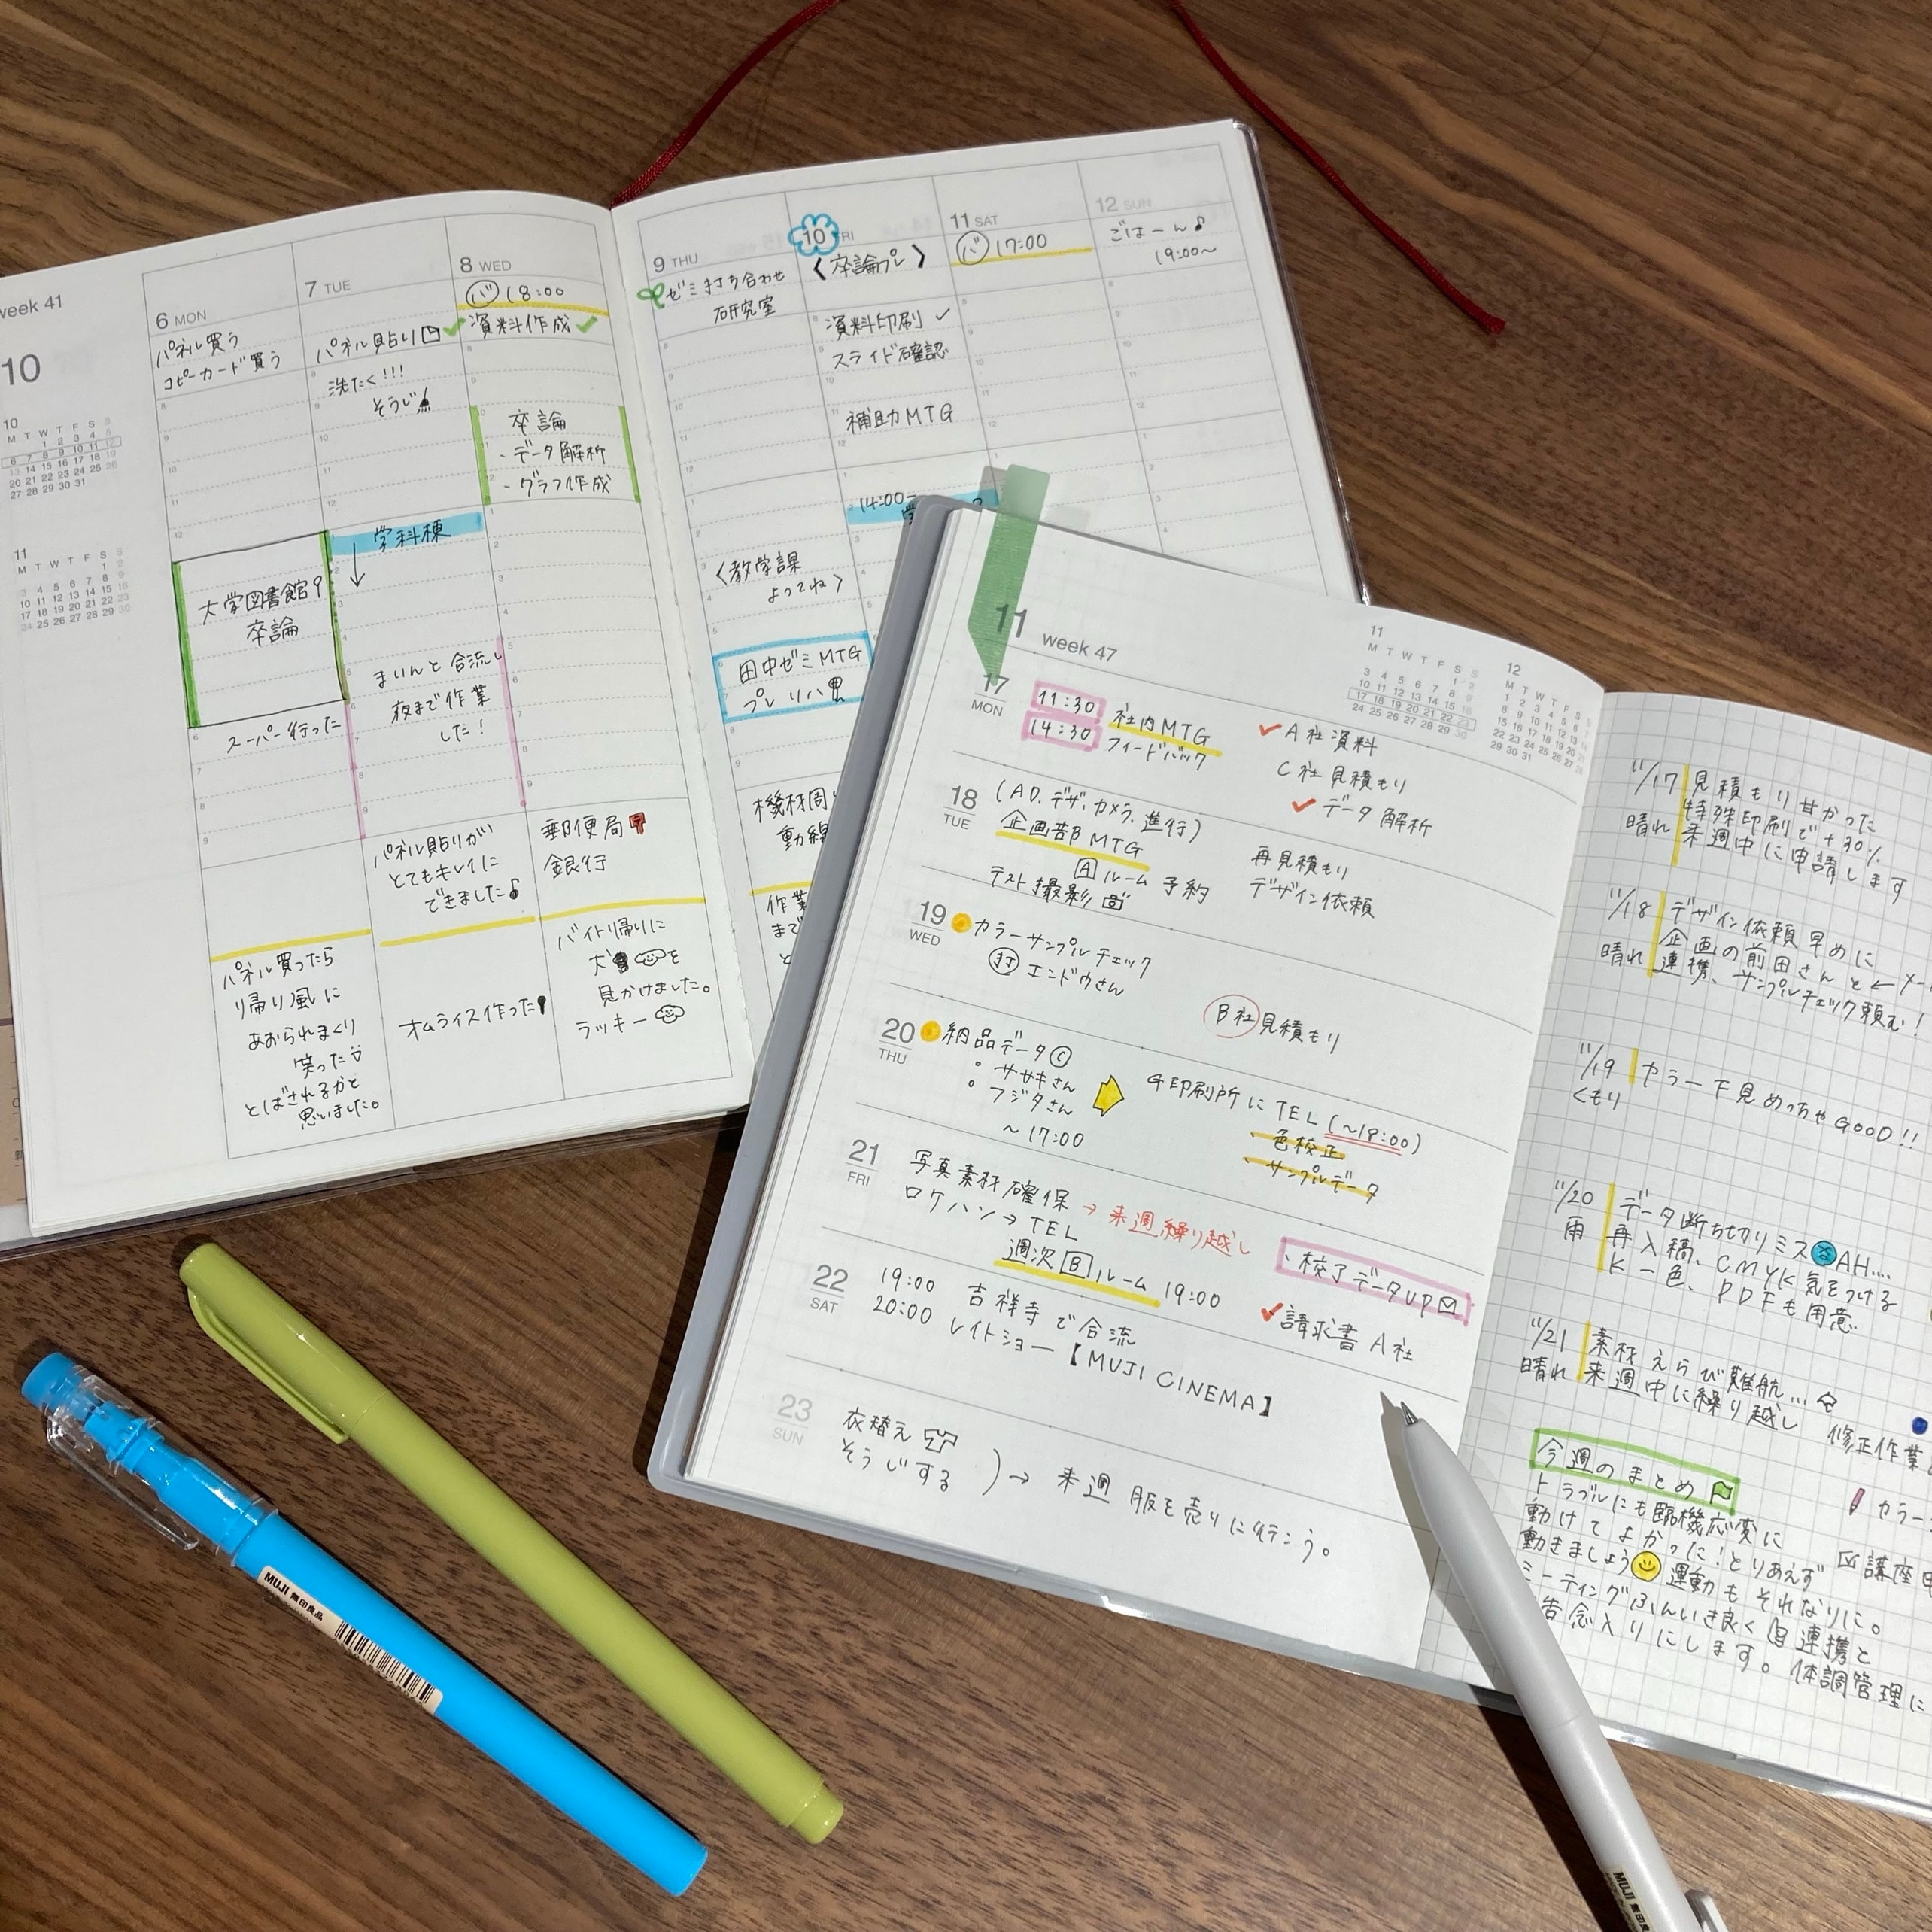 week 41
10
10
M T W T F S S
1 2 3 4 5
6 7 8 9 10 11 12
13 14 15 16 17 18 19
20 21 22 23 24 25 26
27 28 29 30 31
11
M T W T F S S
1 2
3 4 5 6 7 8 9
10 11 12 13 14 15 16
17 18 19 20 21 22 23
24 25 26 27 28 29 30
6 MON
パネル買う
コピーカード買う
大学図書館
卒論
スーパー行った
パネル買ったら
帰り風に
あおられまくり
笑った
とばされるかと
思いました。
7 TUE
パネル貼り
洗たく!!!
そうじ
学科棟
まいんと合流し
夜まで作業
した!
パネル貼りが
とてもキレイに
できました♪
オムライス作った
8 WED
バ 18:00
資料作成
卒論
・データ解析
・グラフ作成
郵便局
銀行
バイト帰りに
犬を
見かけました。
ラッキー
9 THU
ゼミ打ち合わせ
研究室
〈教学課
よってね〉
田中ゼミMTG
プレリハ
機材周り
動線
作業
まで
10 FRI
〈卒論プレ〉
資料印刷
スライド確認
補助MTG
14:00~
11 SAT
バ 17:00
12 SUN
ごはーん♪
19:00~
11 week 47
11
M T W T F S S
1 2
3 4 5 6 7 8 9
10 11 12 13 14 15 16
17 18 19 20 21 22 23
24 25 26 27 28 29 30
12
M T W T F S S
1 2 3 4 5 6 7
8 9 10 11 12 13 14
15 16 17 18 19 20 21
22 23 24 25 26 27 28
29 30 31
17 MON
11:30 社内MTG
14:30 フィードバック
A社資料
C社見積もり
データ解析
18 TUE
(AD.デザ.カメラ.進行)
企画書B MTG
Aルーム予約
テスト撮影
再見積もり
デザイン依頼
19 WED
カラーサンプルチェック
打 エンドウさん
B社見積もり
20 THU
納品データC
ササキさん
フジタさん
~17:00
G印刷所にTEL(~18:00)
色校正
サンプルデータ
21 FRI
写真素材確保→来週繰り越し
ロケハン→TEL
週次Bルーム 19:00
校了データUP
22 SAT
19:00 吉祥寺で合流
20:00 レイトショー【MUJI CINEMA】
請求書 A社
23 SUN
衣替え
そうじする
→ 来週 服を売りに行こう。
11/17 見積もり甘かった
特殊印刷で+30%
晴れ 来週中に申請します
11/18 デザイン依頼早めに
企画の前田さんと←
晴れ 連携、サンプルチェック頼む!
11/19 カラー下見めっちゃGOOD!!
くもり
11/20 データ断ち切りミスAH....
雨 再入稿、CMYK気をつける
K一色、PDFも用意
11/21 素材えらび難航...
晴れ 来週中に繰り越し
修正作業
今週のまとめ
トラブルにも臨機応変に
動けてよかった!とりあえず
動きましょう 運動もそれなりに。
ミーティングふんいき良く 連携と
念入りにします。体調管理に
カラー
講座
MUJI 無印良品
MUJI 無印良品